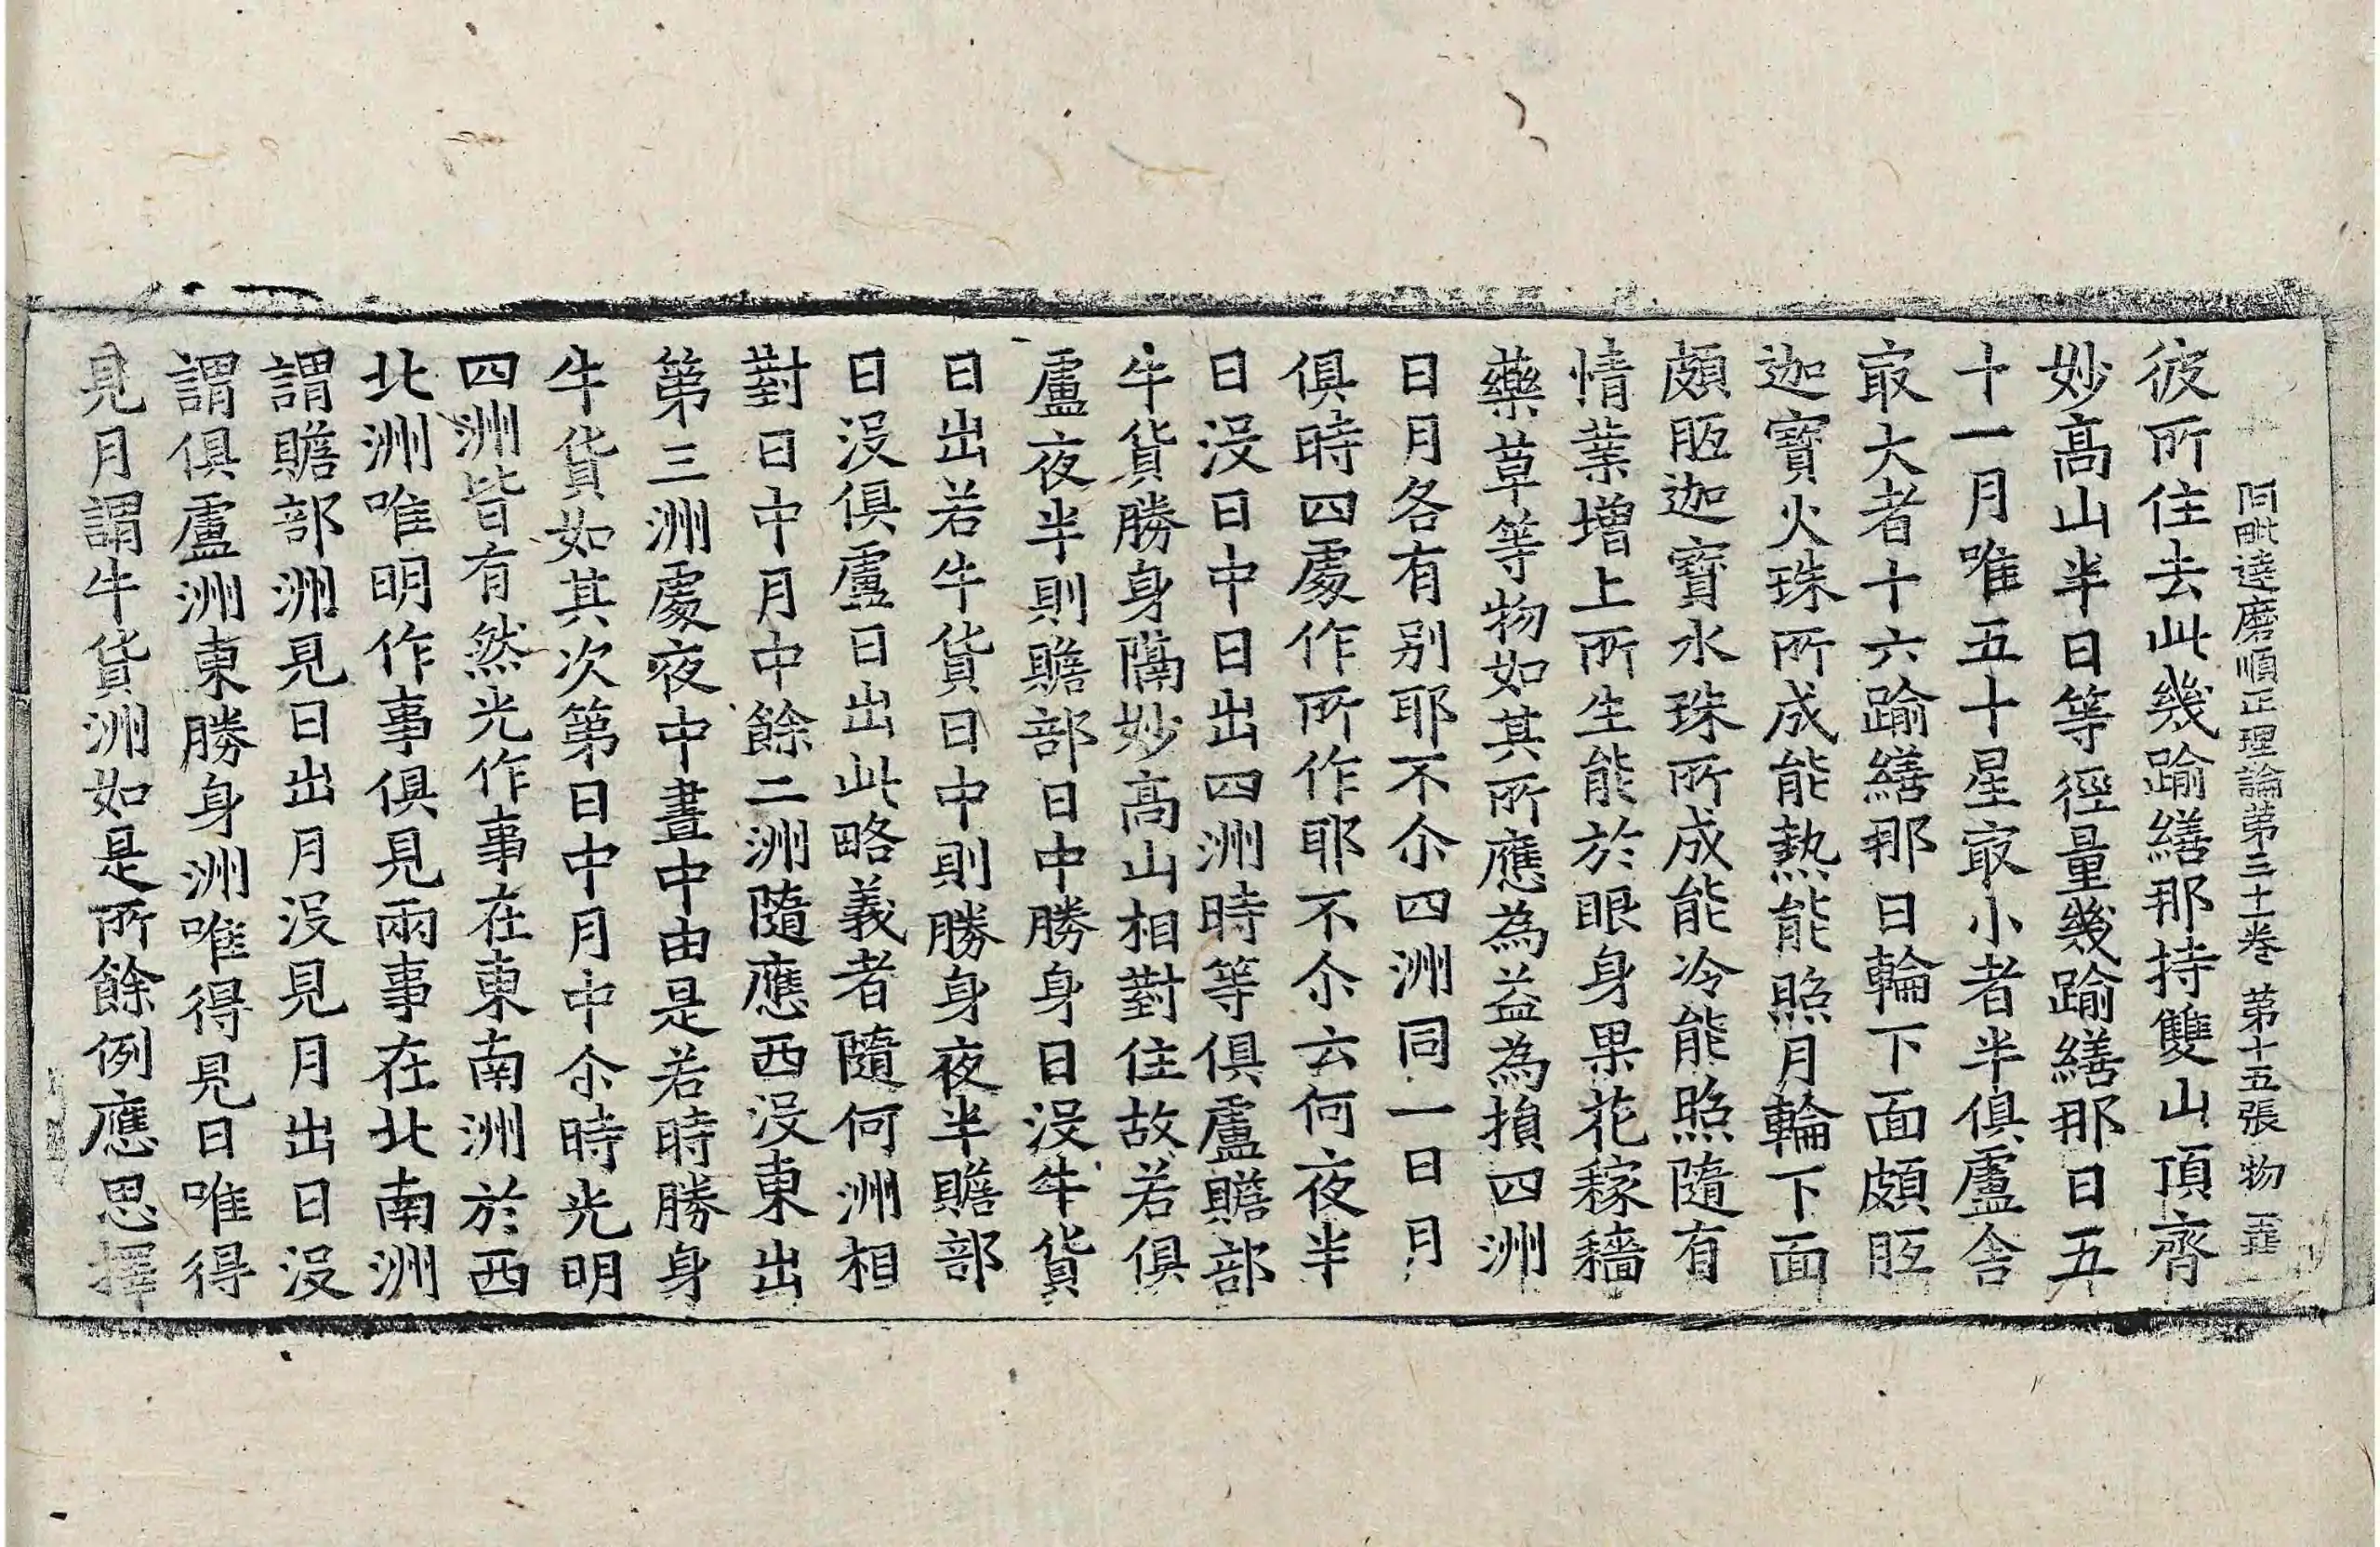 阿毗達磨順正理論第三十一卷 第十五張 物
彼所住去此幾踰繕那持雙山頂齊
妙高山半日等徑量幾踰繕那日五
十一月唯五十星冣小者半俱盧舍
冣大者十六踰繕那日輪下面頗胝
迦寶火珠所成能熱能照月輪下面
頗胝迦寶水珠所成能冷能照隨有
情業增上所生能於眼身果花稼穡
藥草等物如其所應為益為損四洲
日月各有别耶不尒四洲同一日月
俱時四處作所作耶不尒云何夜半
日没日中日出四洲時等俱盧贍部
牛貨勝身隔妙高山相對住故若俱
盧夜半則贍部日中勝身日没牛貨
日出若牛貨日中則勝身夜半贍部
日没俱盧日出此略義者隨何洲相
對日中月中餘二洲隨應西没東出
第三洲處夜中晝中由是若時勝身
牛貨如其次第日中月中尒時光明
四洲皆有然光作事在東南洲於西
北洲唯明作事俱見兩事在北南洲
謂贍部洲見日出月没見月出日没
謂俱盧洲東勝身洲唯得見日唯得
見月謂牛貨洲如是所餘例應思擇